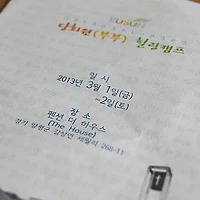 (부부) 힐링캠프
일 시
2013년 3월 1일(금)
~2일(토)
장 소
펜션 더 하우스
(The House)
경기 양평군 강상면 세월리 268-11